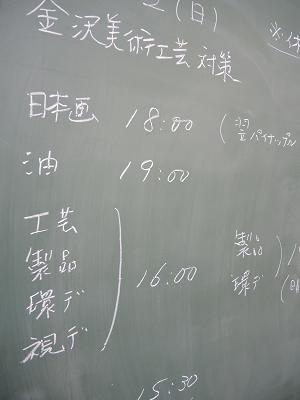 (日)
金沢美術工芸対策
日本画 18:00
パイナップル
油 19:00
工芸
製品
環デ
視デ
16:00
製品
環デ
15:30